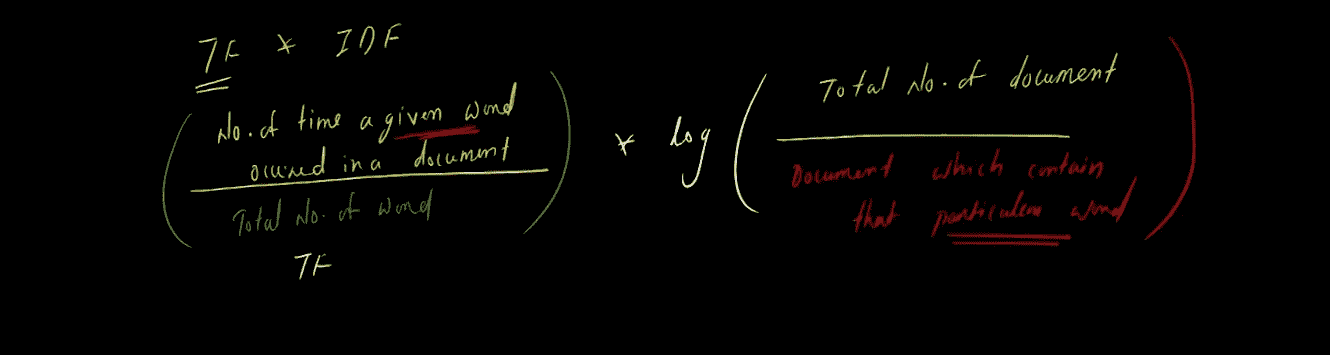 TF * IDF
No. of time a given word
occured in a document
Total No. of word
TF
* log
Total No. of document
Document which contain
that particular word